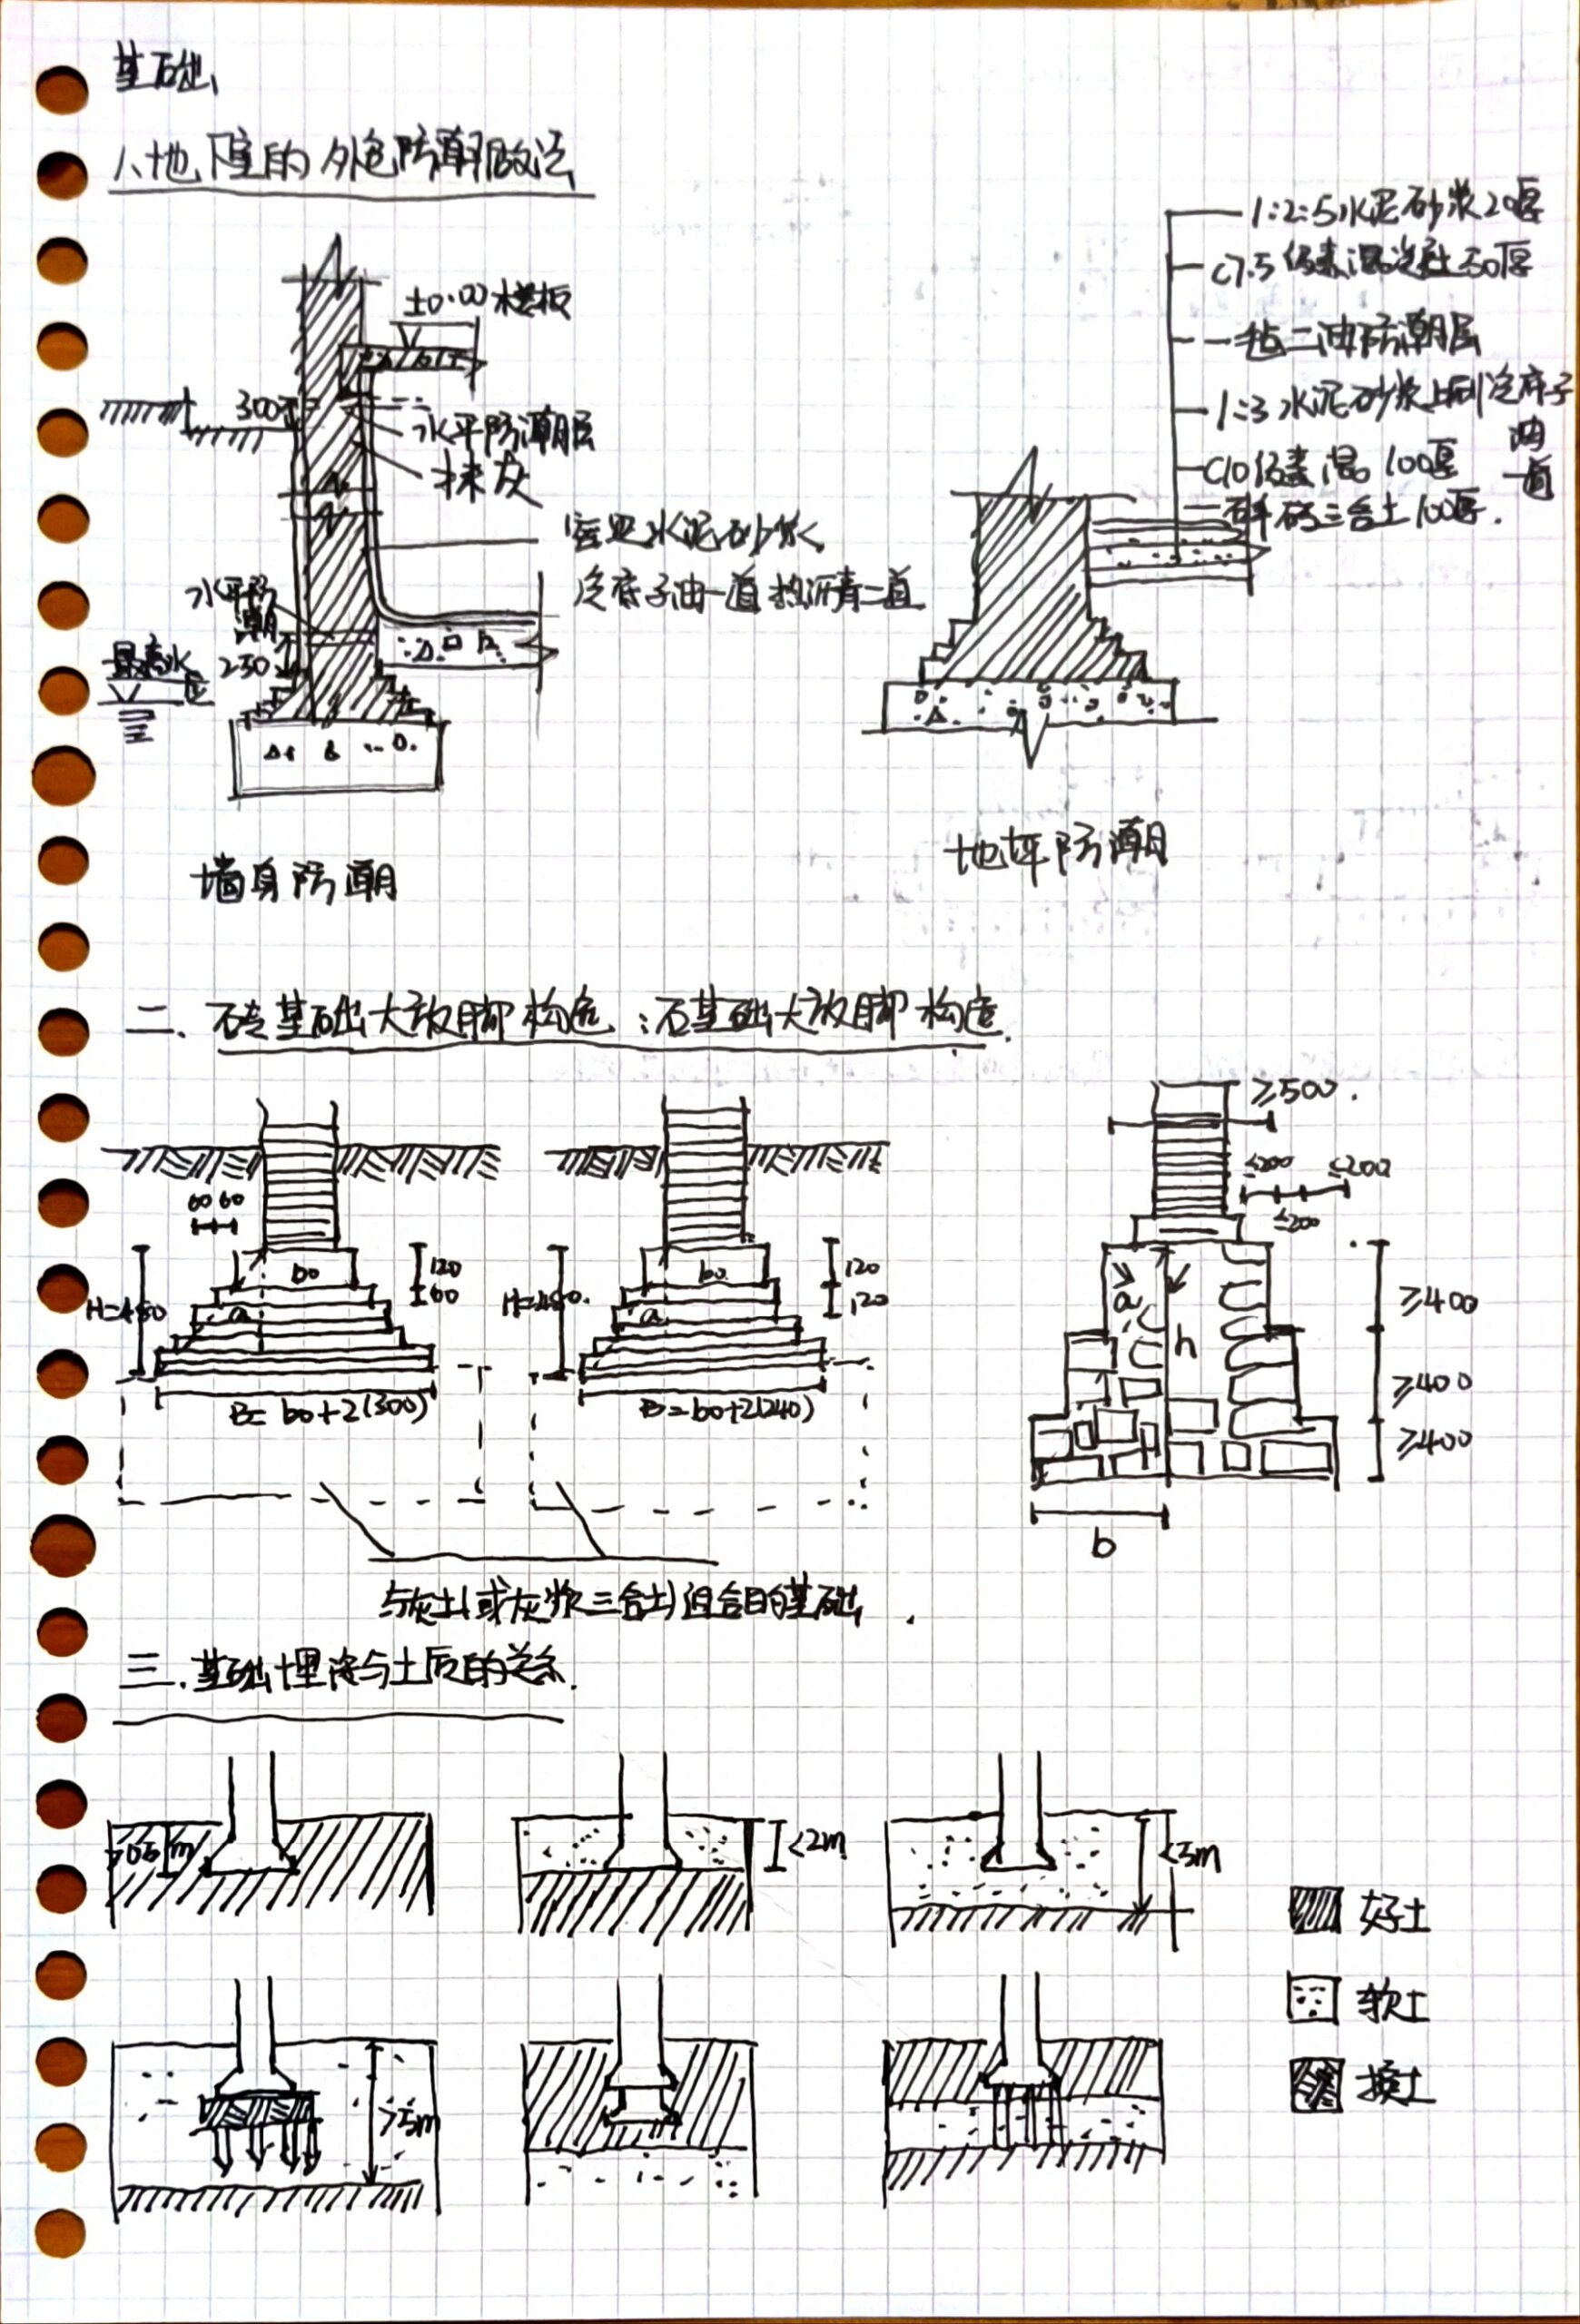 基础
1、地下室的外包防潮做法
±0.00 楼板
300
水平防潮层
抹灰
水泥砂浆
冷底子油一道 热沥青二道
水平防潮
250
最高水
墙身防潮
1:2:5水泥砂浆20厚
C7.5 混凝土50厚
一毡二油防潮层
1:3水泥砂浆上刷冷底子油一道
C10 100厚
碎砖三合土100厚.
地坪防潮
二. 砖基础大放脚构造：石基础大放脚构造.
60 60
b0
120
60
H=480
a
B=b0+2(300)
b0
120
120
H=480.
a
B=b0+2(240)
≥500.
≤200
≤200
≤200
a
h
≥400
≥400
≥400
b
与灰土(或灰浆三合土)组合的基础.
三. 基础埋深与土质的关系.
m
<2m
<5m
>5m
好土
软土
换土